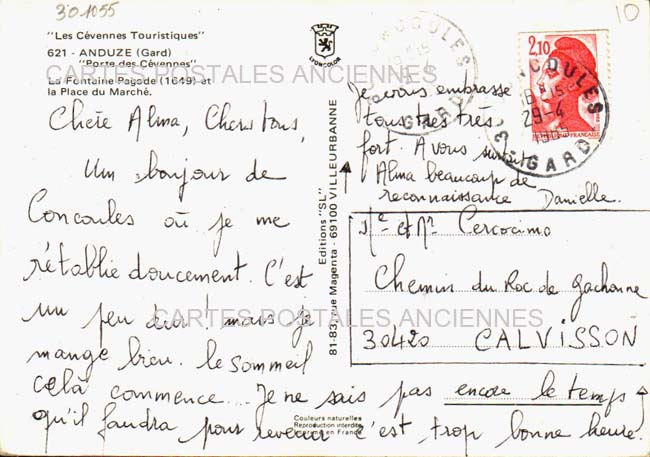 301055
10
"Les Cévennes Touristiques"
621 - ANDUZE (Gard)
"Porte des Cévennes"
La Fontaine Pagode (1649) et
la Place du Marché.
CARTES POSTALES ANCIENNES
LYONCOLOR
2,10
CONCOULES
18H15
29-4
1985
GARD
Chère Alma, Chers tous,
Un bonjour de
Concoules où je me
rétablie doucement. C'est
un peu dur ! mais je
mange bien. le sommeil
celà commence... Je ne sais pas encore le temps
qu'il faudra pour revenir c'est trop bonne heure.
Je vous embrasse
tous très très
fort. A vous surtout
Alma beaucoup de
reconnaissance Danielle.
Editions "SL"
81-83, rue Magenta - 69100 VILLEURBANNE
Mme et Mr Cercocimo
Chemin du Roc de Gachonne
30420 CALVISSON
CARTES POSTALES ANCIENNES
Couleurs naturelles
Reproduction interdite
Imprimé en France